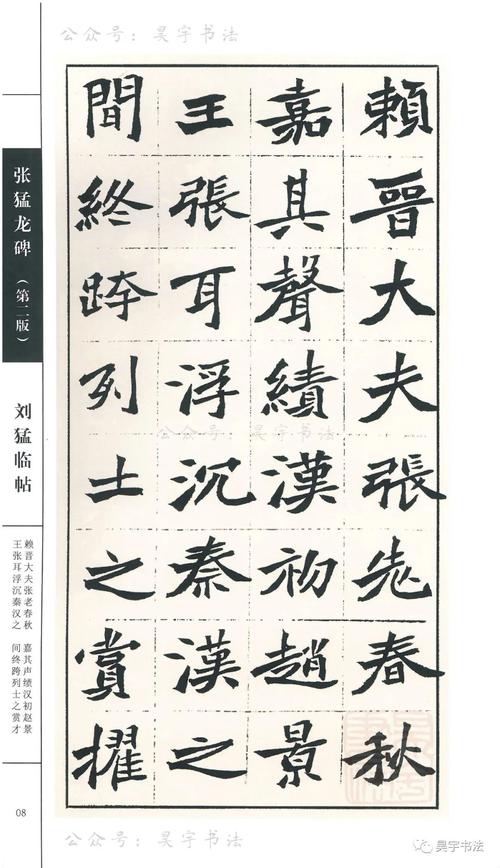 公众号：昊宇书法
賴晉大夫張老春秋
嘉其聲績漢初趙景
王張耳浮沉秦漢之
間終跨列土之賞擢
公众号：昊宇书法
张猛龙碑（第二版）
刘猛临帖
赖晋大夫张老春秋 嘉其声绩汉初赵景
王张耳浮沉秦汉之 间终跨列士之赏才
08
公众号：昊宇书法
昊宇书法